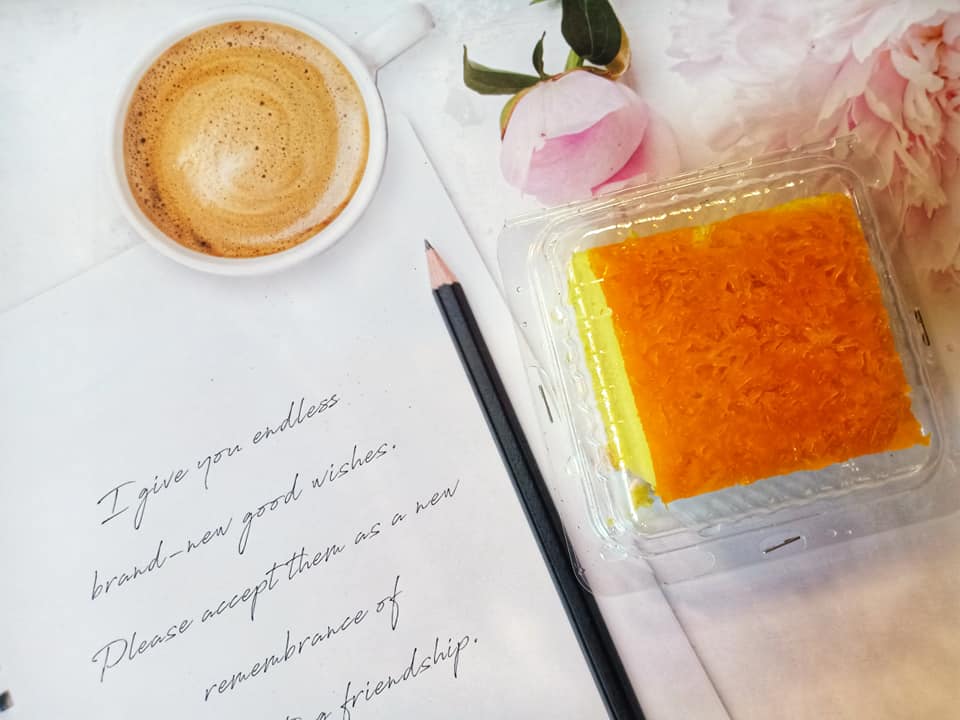 I give you endless
brand-new good wishes.
Please accept them as a new
remembrance of
friendship.